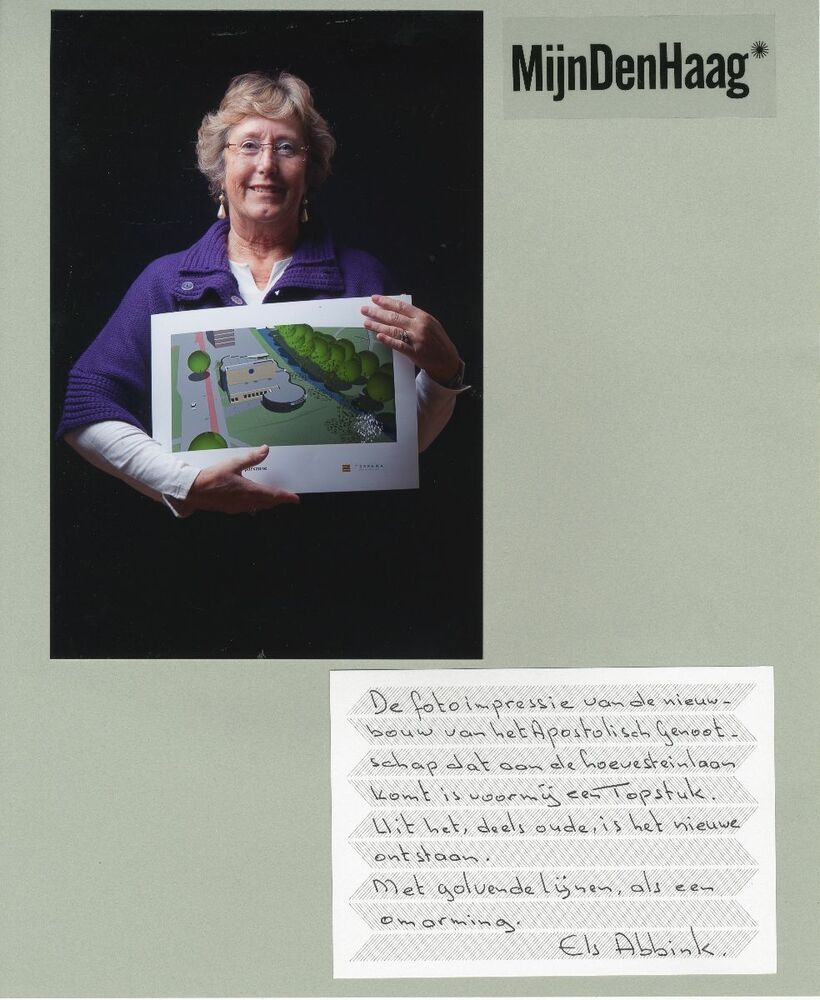 MijnDenHaag*
De fotoimpressie van de nieuw-
bouw van het Apostolisch Genoot-
schap dat aan de hoevesteinlaan
komt is voor mij een Topstuk.
Uit het, deels oude, is het nieuwe
ontstaan.
Met golvende lijnen, als een
omarming.
Els Abbink.